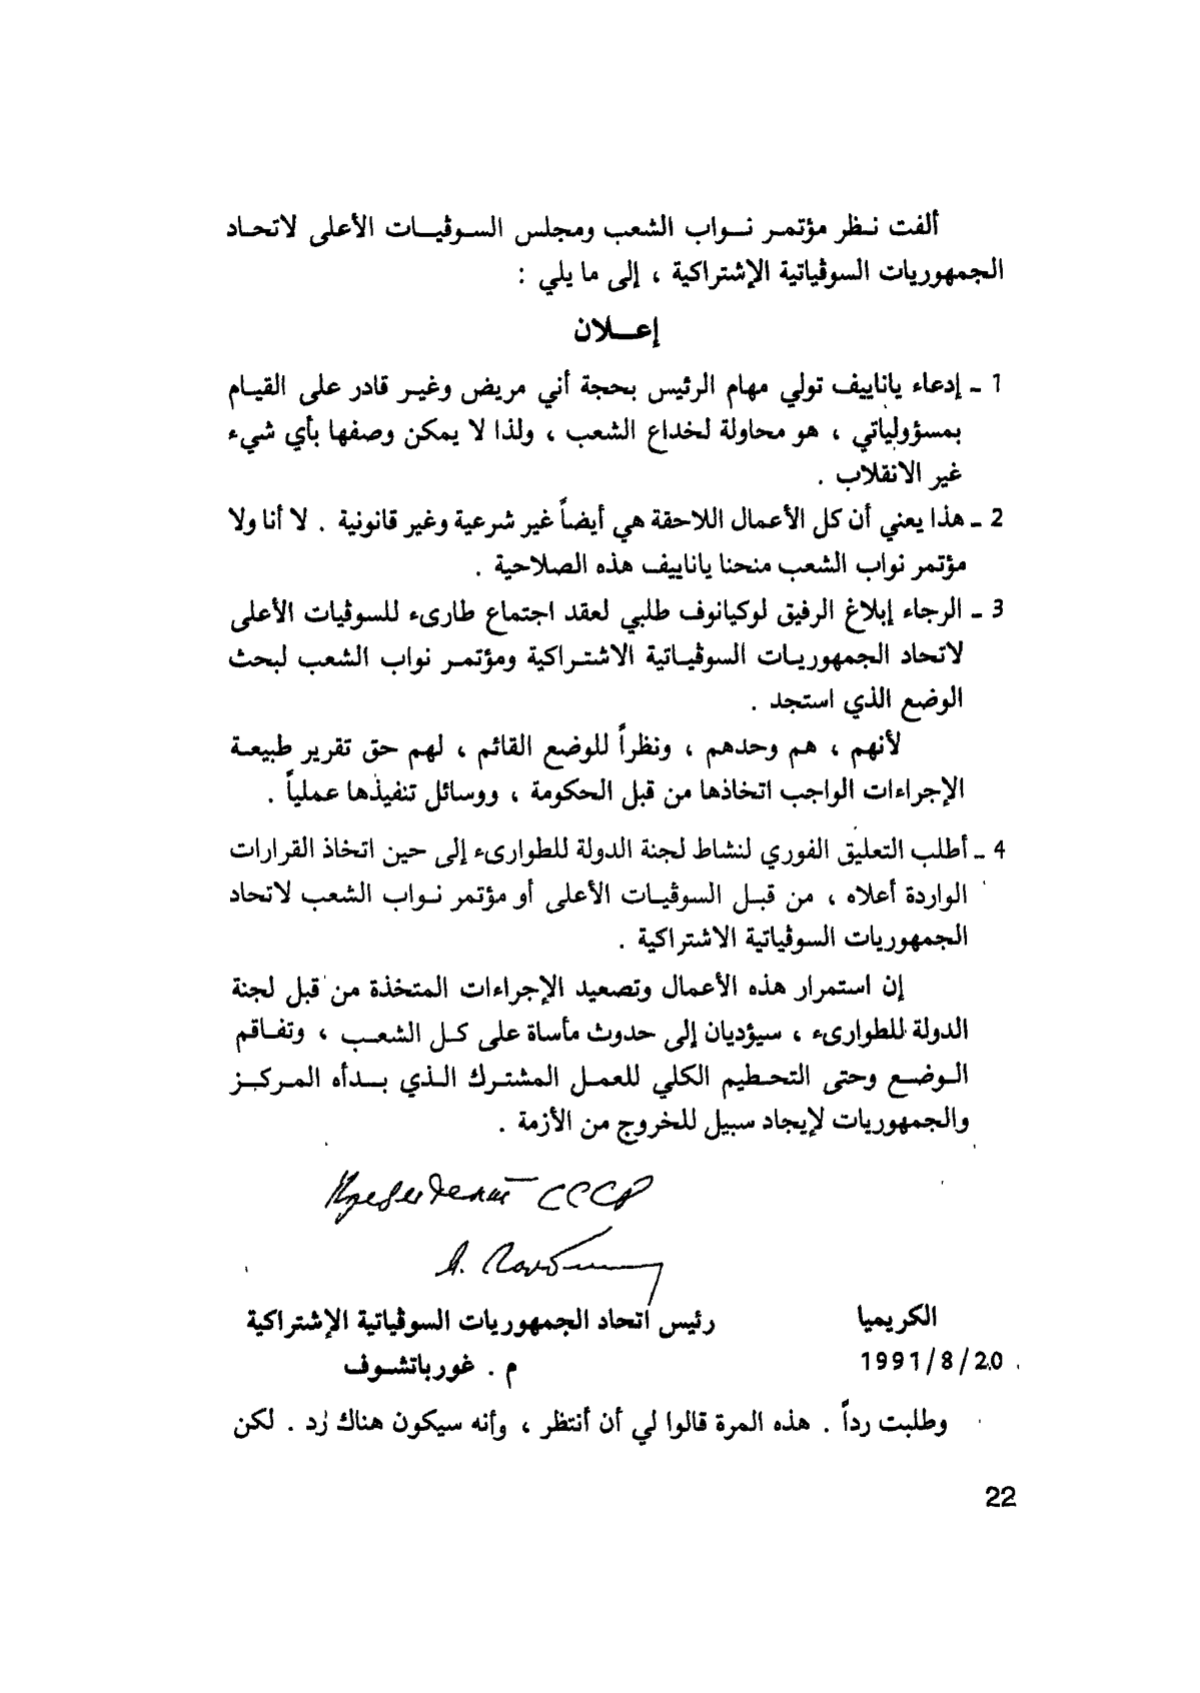 ألفت نـظر مؤتمـر نـواب الشعب ومجلس السـوڤيـات الأعلى لاتحـاد
الجمهوريات السوڤياتية الإشتراكية ، إلى ما يلي :
إعـلان
1 ـ إدعاء ياناييف تولي مهام الرئيس بحجة أني مريض وغيـر قادر على القيام
بمسؤولياتي ، هو محاولة لخداع الشعب ، ولذا لا يمكن وصفها بأي شيء
غير الانقلاب .
2 ـ هذا يعني أن كل الأعمال اللاحقة هي أيضاً غير شرعية وغير قانونية . لا أنا ولا
مؤتمر نواب الشعب منحنا ياناييف هذه الصلاحية .
3 ـ الرجاء إبلاغ الرفيق لوكيانوف طلبي لعقد اجتماع طارىء للسوڤيات الأعلى
لاتحاد الجمهوريـات السوڤيـاتية الاشتـراكية ومؤتمـر نواب الشعب لبحث
الوضع الذي استجد .
لأنهم ، هم وحدهم ، ونظراً للوضع القائم ، لهم حق تقرير طبيعـة
الإجراءات الواجب اتخاذها من قبل الحكومة ، ووسائل تنفيذها عملياً .
4 ـ أطلب التعليق الفوري لنشاط لجنة الدولة للطوارىء إلى حين اتخاذ القرارات
الواردة أعلاه ، من قبـل السوڤيـات الأعلى أو مؤتمر نـواب الشعب لاتحاد
الجمهوريات السوڤياتية الاشتراكية .
إن استمرار هذه الأعمال وتصعيد الإجراءات المتخذة من قبل لجنة
الدولة للطوارىء ، سيؤديان إلى حدوث مأساة على كـل الشعـب ، وتفـاقم
الـوضـع وحتى التحـطيم الكلي للعمـل المشتـرك الـذي بـدأه المـركـز
والجمهوريات لإيجاد سبيل للخروج من الأزمة .
Президент СССР
الكريميا
رئيس اتحاد الجمهوريات السوڤياتية الإشتراكية
1991/8/20
م . غورباتشـوف
وطلبت رداً . هذه المرة قالوا لي أن أنتظر ، وأنه سيكون هناك رُد . لكن
22